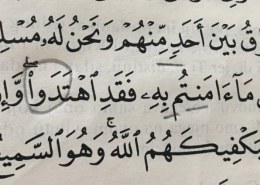 قُ بَيْنَ أَحَدٍ مِّنْهُمْ وَنَحْنُ لَهُۥ مُسْلِ
مَآ ءَامَنتُم بِهِۦ فَقَدِ ٱهْتَدَوا۟ ۖ وَّإِ
يَكْفِيكَهُمُ ٱللَّهُ ۚ وَهُوَ ٱلسَّمِي